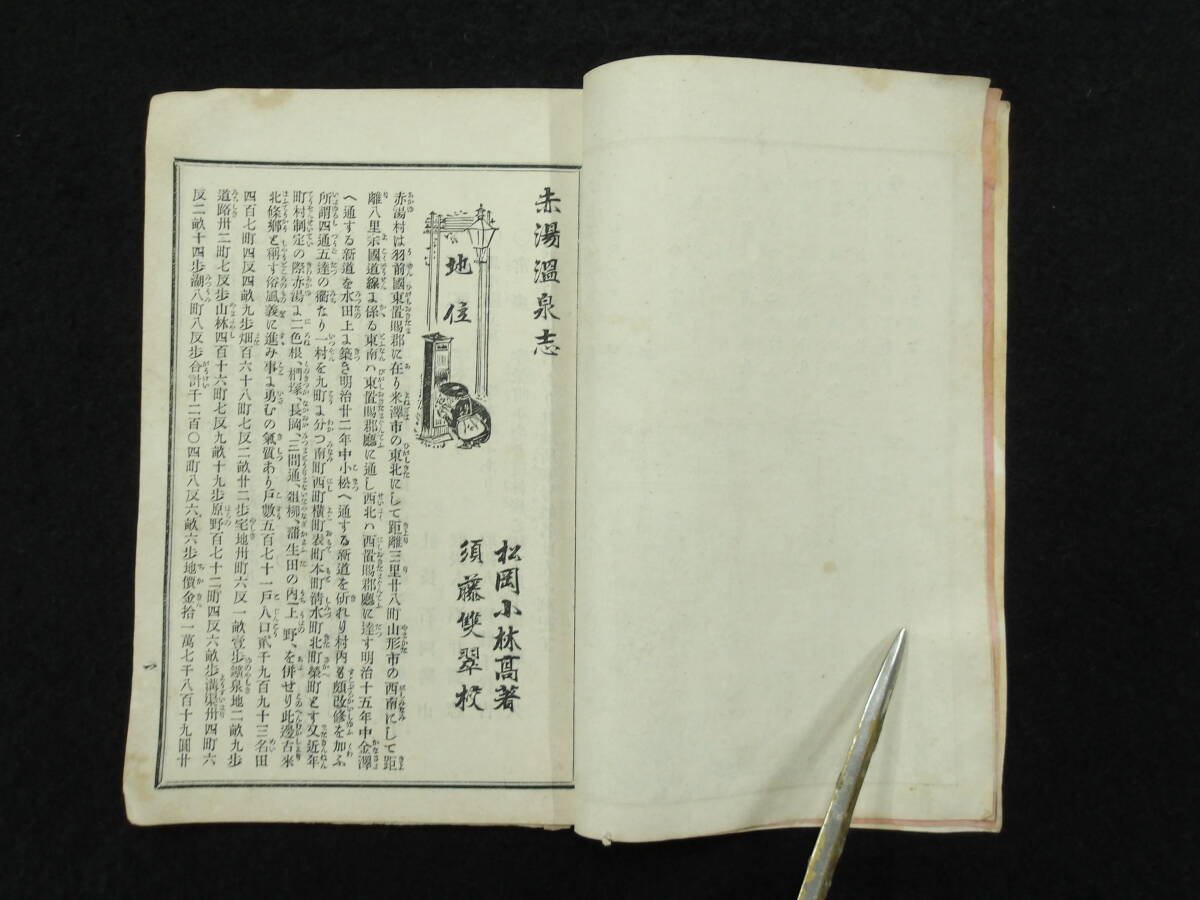 赤湯溫泉志
松岡小林髙著
須藤雙翠校
地位
赤湯村は羽前國東置賜郡に在り米澤市の東北にして距離三里廿八町山形市の西南にして距
離八里宗國道線に係る東南ハ東置賜郡廳に通し西北ハ西置賜郡廳に達す明治十五年中金澤
へ通する新道を水田上に築き明治廿二年中小松へ通する新道を斫れり村內も頗改修を加ふ
所謂四通五達の衢なり一村を九町に分つ南町西町橫町表町本町淸水町北町榮町とす又近年
町村制定の際赤湯に二色根、椚塚、長岡、三間通、爼柳、蒲生田の內上野、を併せり此邊古來
北條鄕と稱す俗風義に進み事に勇むの氣質あり戶數五百七十一戶人口貳千九百九十三名田
四百七町四反四畝九步畑百六十八町七反二畝廿二步宅地卅町六反一畝壹步鑛泉地二畝九步
道路卅二町七反步山林四百十六町七反九畝十九步原野百七十二町四反六畝步溝渠卅四町六
反二畝十四步湖八町八反步合計千二百〇四町八反六畝六步地價金拾一萬七千八百十九圓廿